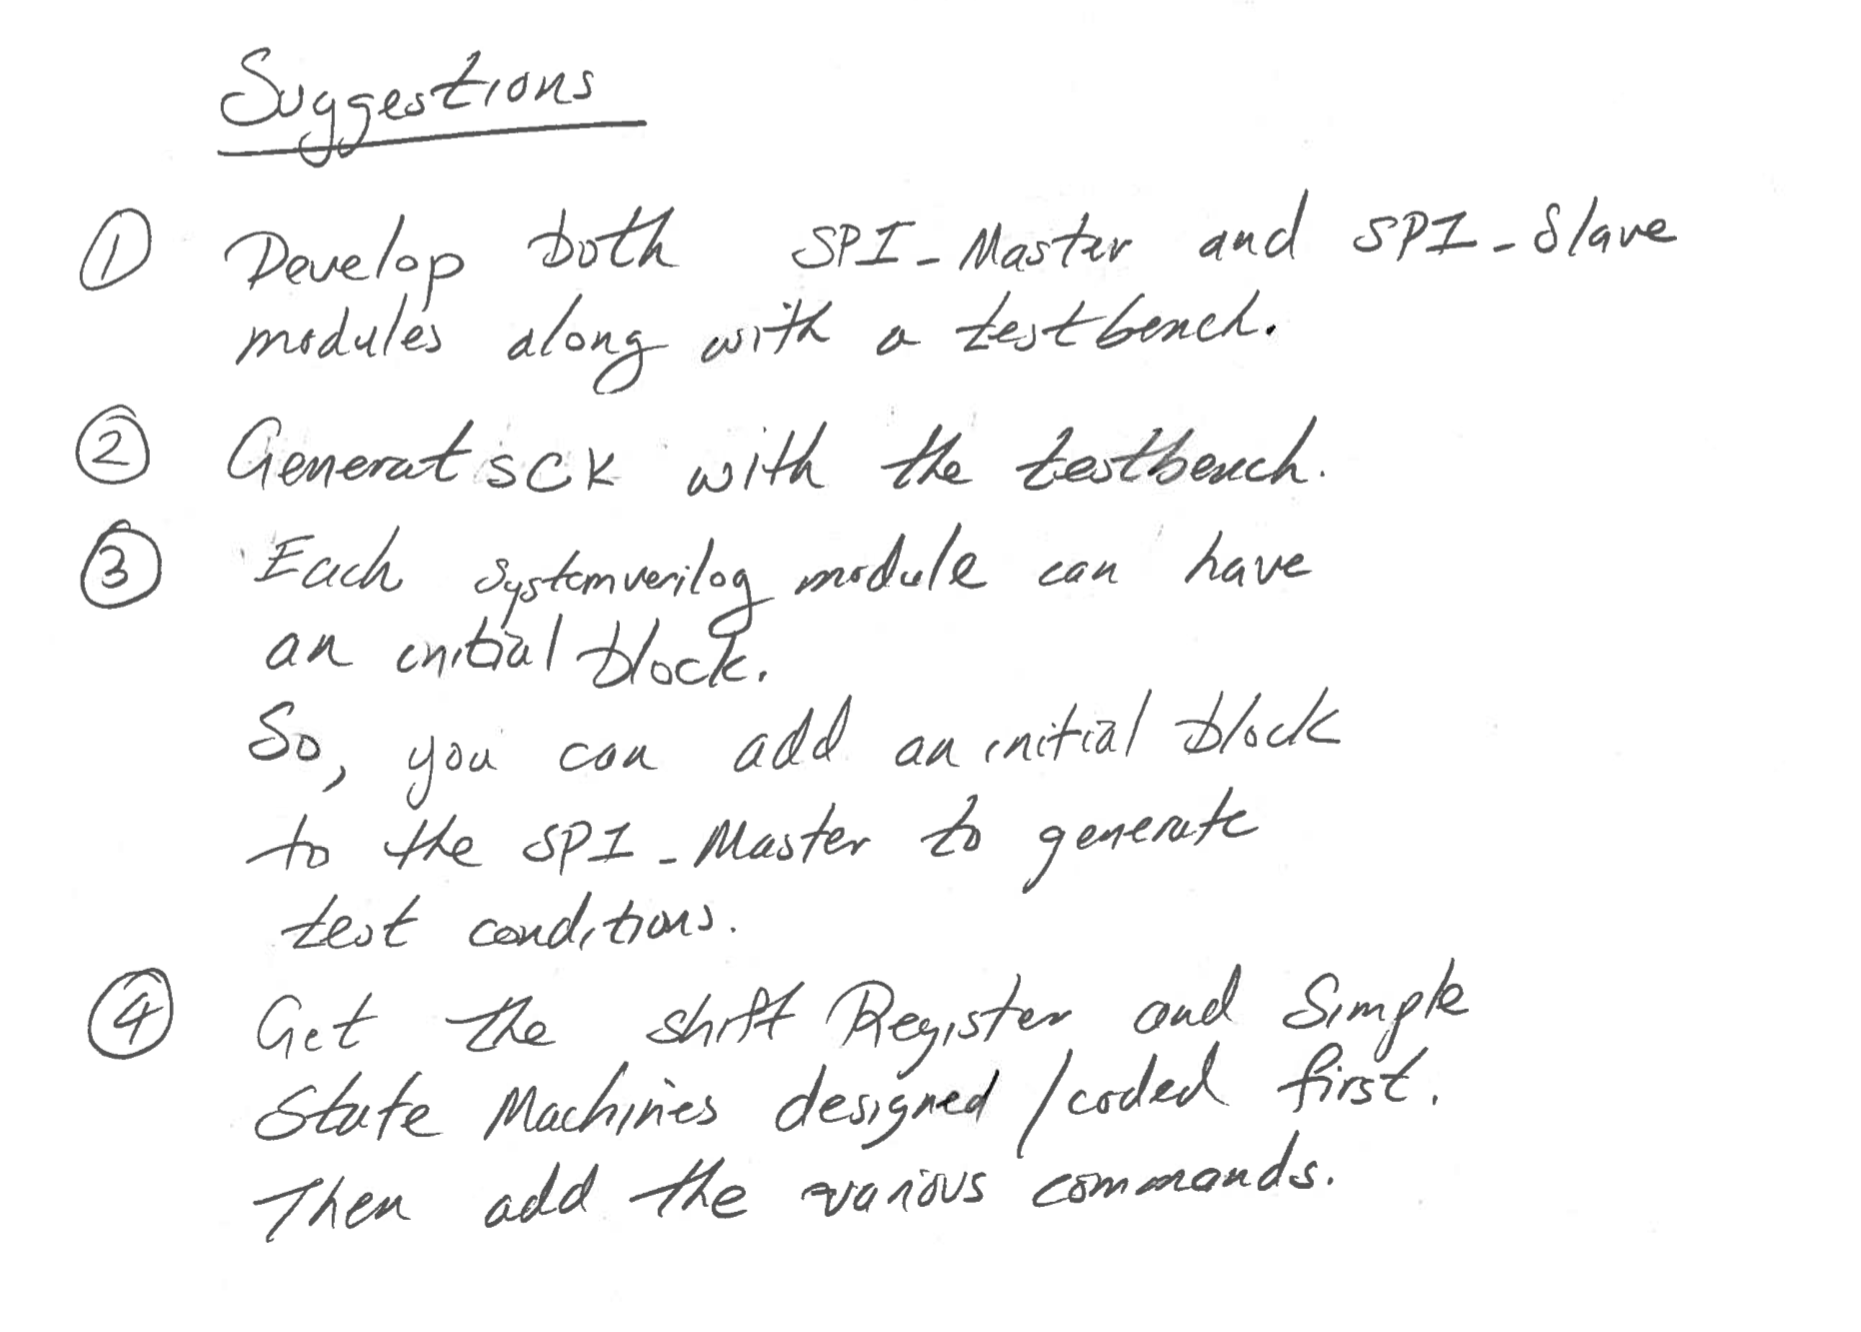 Suggestions
① Develop both SPI_Master and SPI_Slave
modules along with a testbench.
② Generat SCK with the testbench.
③ Each systemverilog module can have
an initial block.
So, you can add an initial block
to the SPI_Master to generate
test conditions.
④ Get the shift Register and Simple
State Machines designed/coded first.
Then add the various commands.